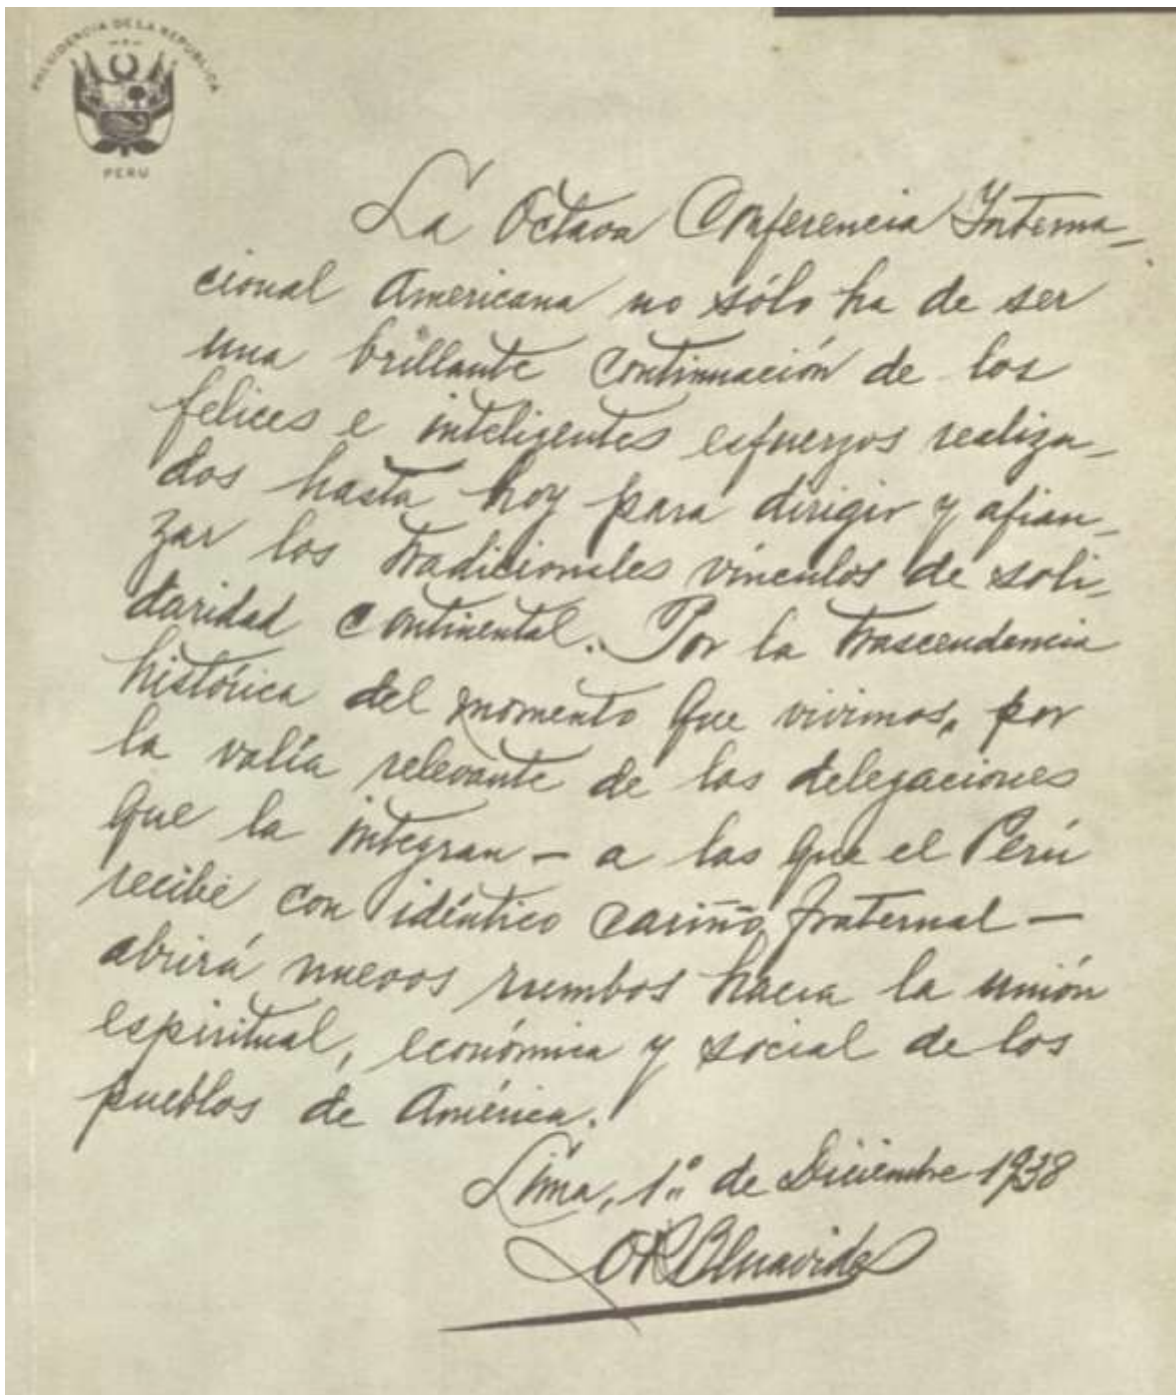 PRESIDENCIA DE LA REPUBLICA
PERU
La Octava Conferencia Interna-
cional Americana no sólo ha de ser
una brillante continuación de los
felices e inteligentes esfuerzos realiza-
dos hasta hoy para dirigir y afian-
zar los tradicionales vínculos de soli-
daridad continental. Por la trascendencia
histórica del momento que vivimos, por
la valía relevante de las delegaciones
que la integran - a las que el Perú
recibe con idéntico cariño fraternal -
abrirá nuevos rumbos hacia la unión
espiritual, económica y social de los
pueblos de América.
Lima, 1º de Diciembre 1938
OR Benavides